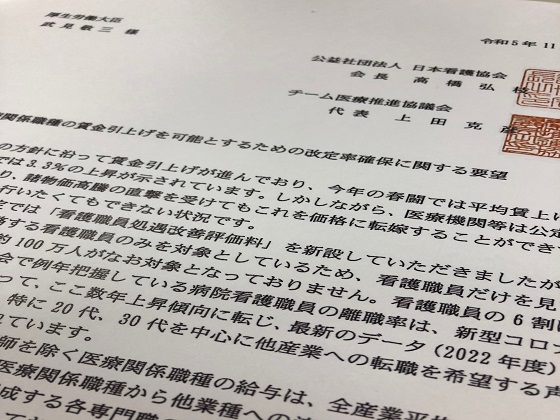 厚生労働大臣
武見敬三 様
令和5年 11
公益社団法人 日本看護協会
会長 高橋弘枝
チーム医療推進協議会
代表 上田克彦
関係職種の賃金引上げを可能とするための改定率確保に関する要望
の方針に沿って賃金引上げが進んでおり、今年の春闘では平均賃上げ
では3.3%の上昇が示されています。しかしながら、医療機関等は公定
り、諸物価高騰の直撃を受けてもこれを価格に転嫁することができ
行いたくてもできない状況です。
定では「看護職員処遇改善評価料」を新設していただきましたが
務する看護職員のみを対象としているため、看護職員だけを見
約100万人がなお対象となっておりません。看護職員の6割
会で例年把握している病院看護職員の離職率は、新型コロナ
って、ここ数年上昇傾向に転じ、最新のデータ（2022年度）
特に20代、30代を中心に他産業への転職を希望する声
ています。
師を除く医療関係職種の給与は、全産業平均
医療関係職種から他業種への
成する各専門職の